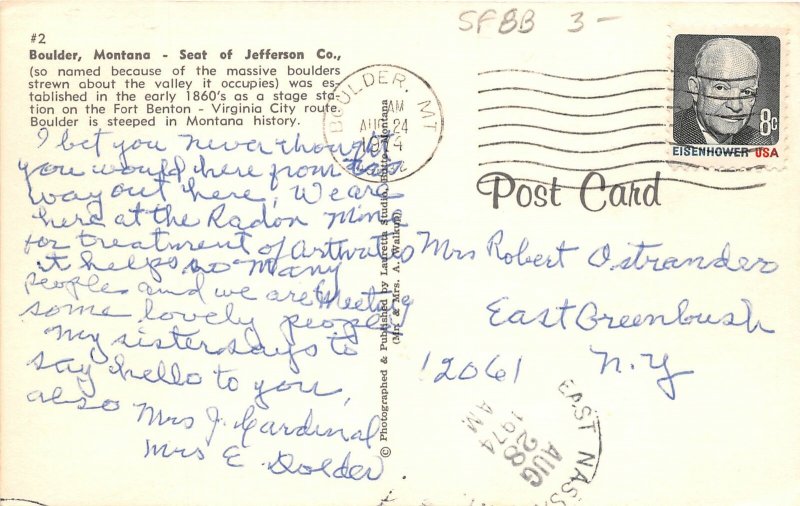 SFBB 3-
#2
Boulder, Montana - Seat of Jefferson Co.,
(so named because of the massive boulders
strewn about the valley it occupies) was es-
tablished in the early 1860's as a stage sta-
tion on the Fort Benton - Virginia City route.
Boulder is steeped in Montana history.
I bet you never thought
you would here from
way out here, We are
here at the Radon Mine
for treatment of Arthritis
it helps so many
people and we are meeting
some lovely people
My sister says to
say hello to you,
also Mrs J. Cardinal
Mrs E. Dolder
© Photographed & Published by Lauretta Studio, Butte, Montana
(Mr. & Mrs. A. Walkup)
BOULDER, MT
AM
AUG 24
1974
8c
EISENHOWER USA
Post Card
Mrs Robert Ostrander
East Greenbush
12061 N.Y
EAST NASSA
AUG
28
1974
AM